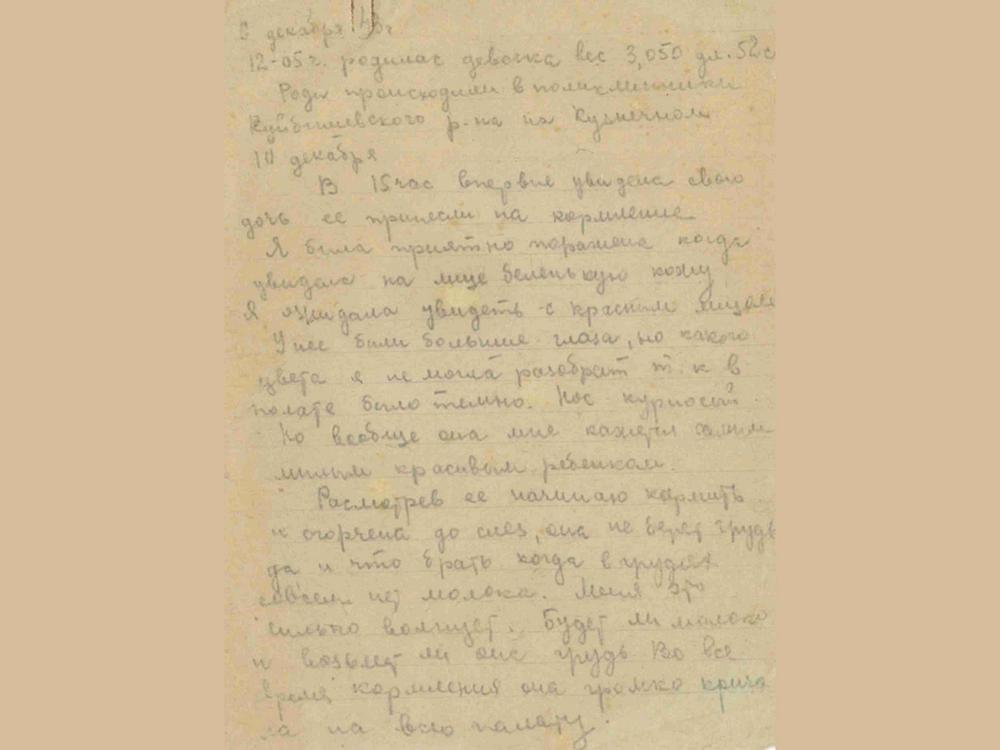 6 декабря 43 г
12-05 ч. родилас девочка вес 3,050 дл. 52 с
Роды происходили в поликлиники
Куйбышевского р-на на Кузнечном
10 декабря
В 15 час впервые увидела свою
дочь ее принесли на кормление
Я была приятно поражена когда
увидела на лице беленькую кожу
Я ожидала увидеть с красным лицом
У нее были большие глаза, но какого
цвета я не могла разобрат т. к в
полате было темно. Нос курносый
Но вообще она мне кажется самым
милым красивым ребенком.
Расмотрев ее начинаю кормить
и огорчена до слез, она не берет грудь
да и что брать когда в грудях
совсем нет молока. Меня это
сильно волнует. Будет ли молоко
и возьмет ли она грудь Во все
время кормления она громко крича
ла на всю палату.